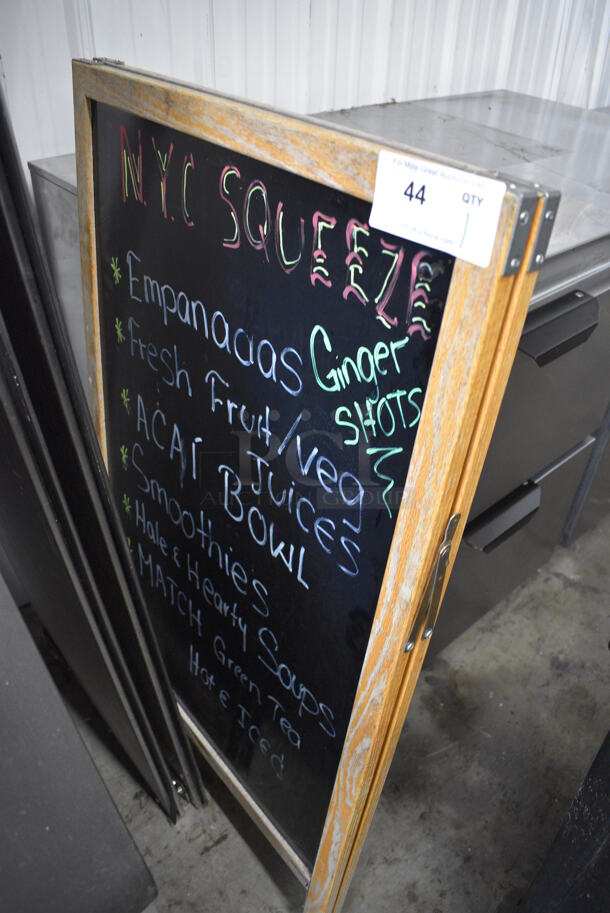 For More Great Auctions visit
44
QTY
1
N.Y.C SQUEEZE
* Empanadas
* Fresh Fruit/Veg
Juices
* ACAI BOWL
* Smoothies
* Hale & Hearty Soups
* MATCH Green Tea
Hot & ICED
Ginger
SHOTS
PCI
AUCTION GROUP